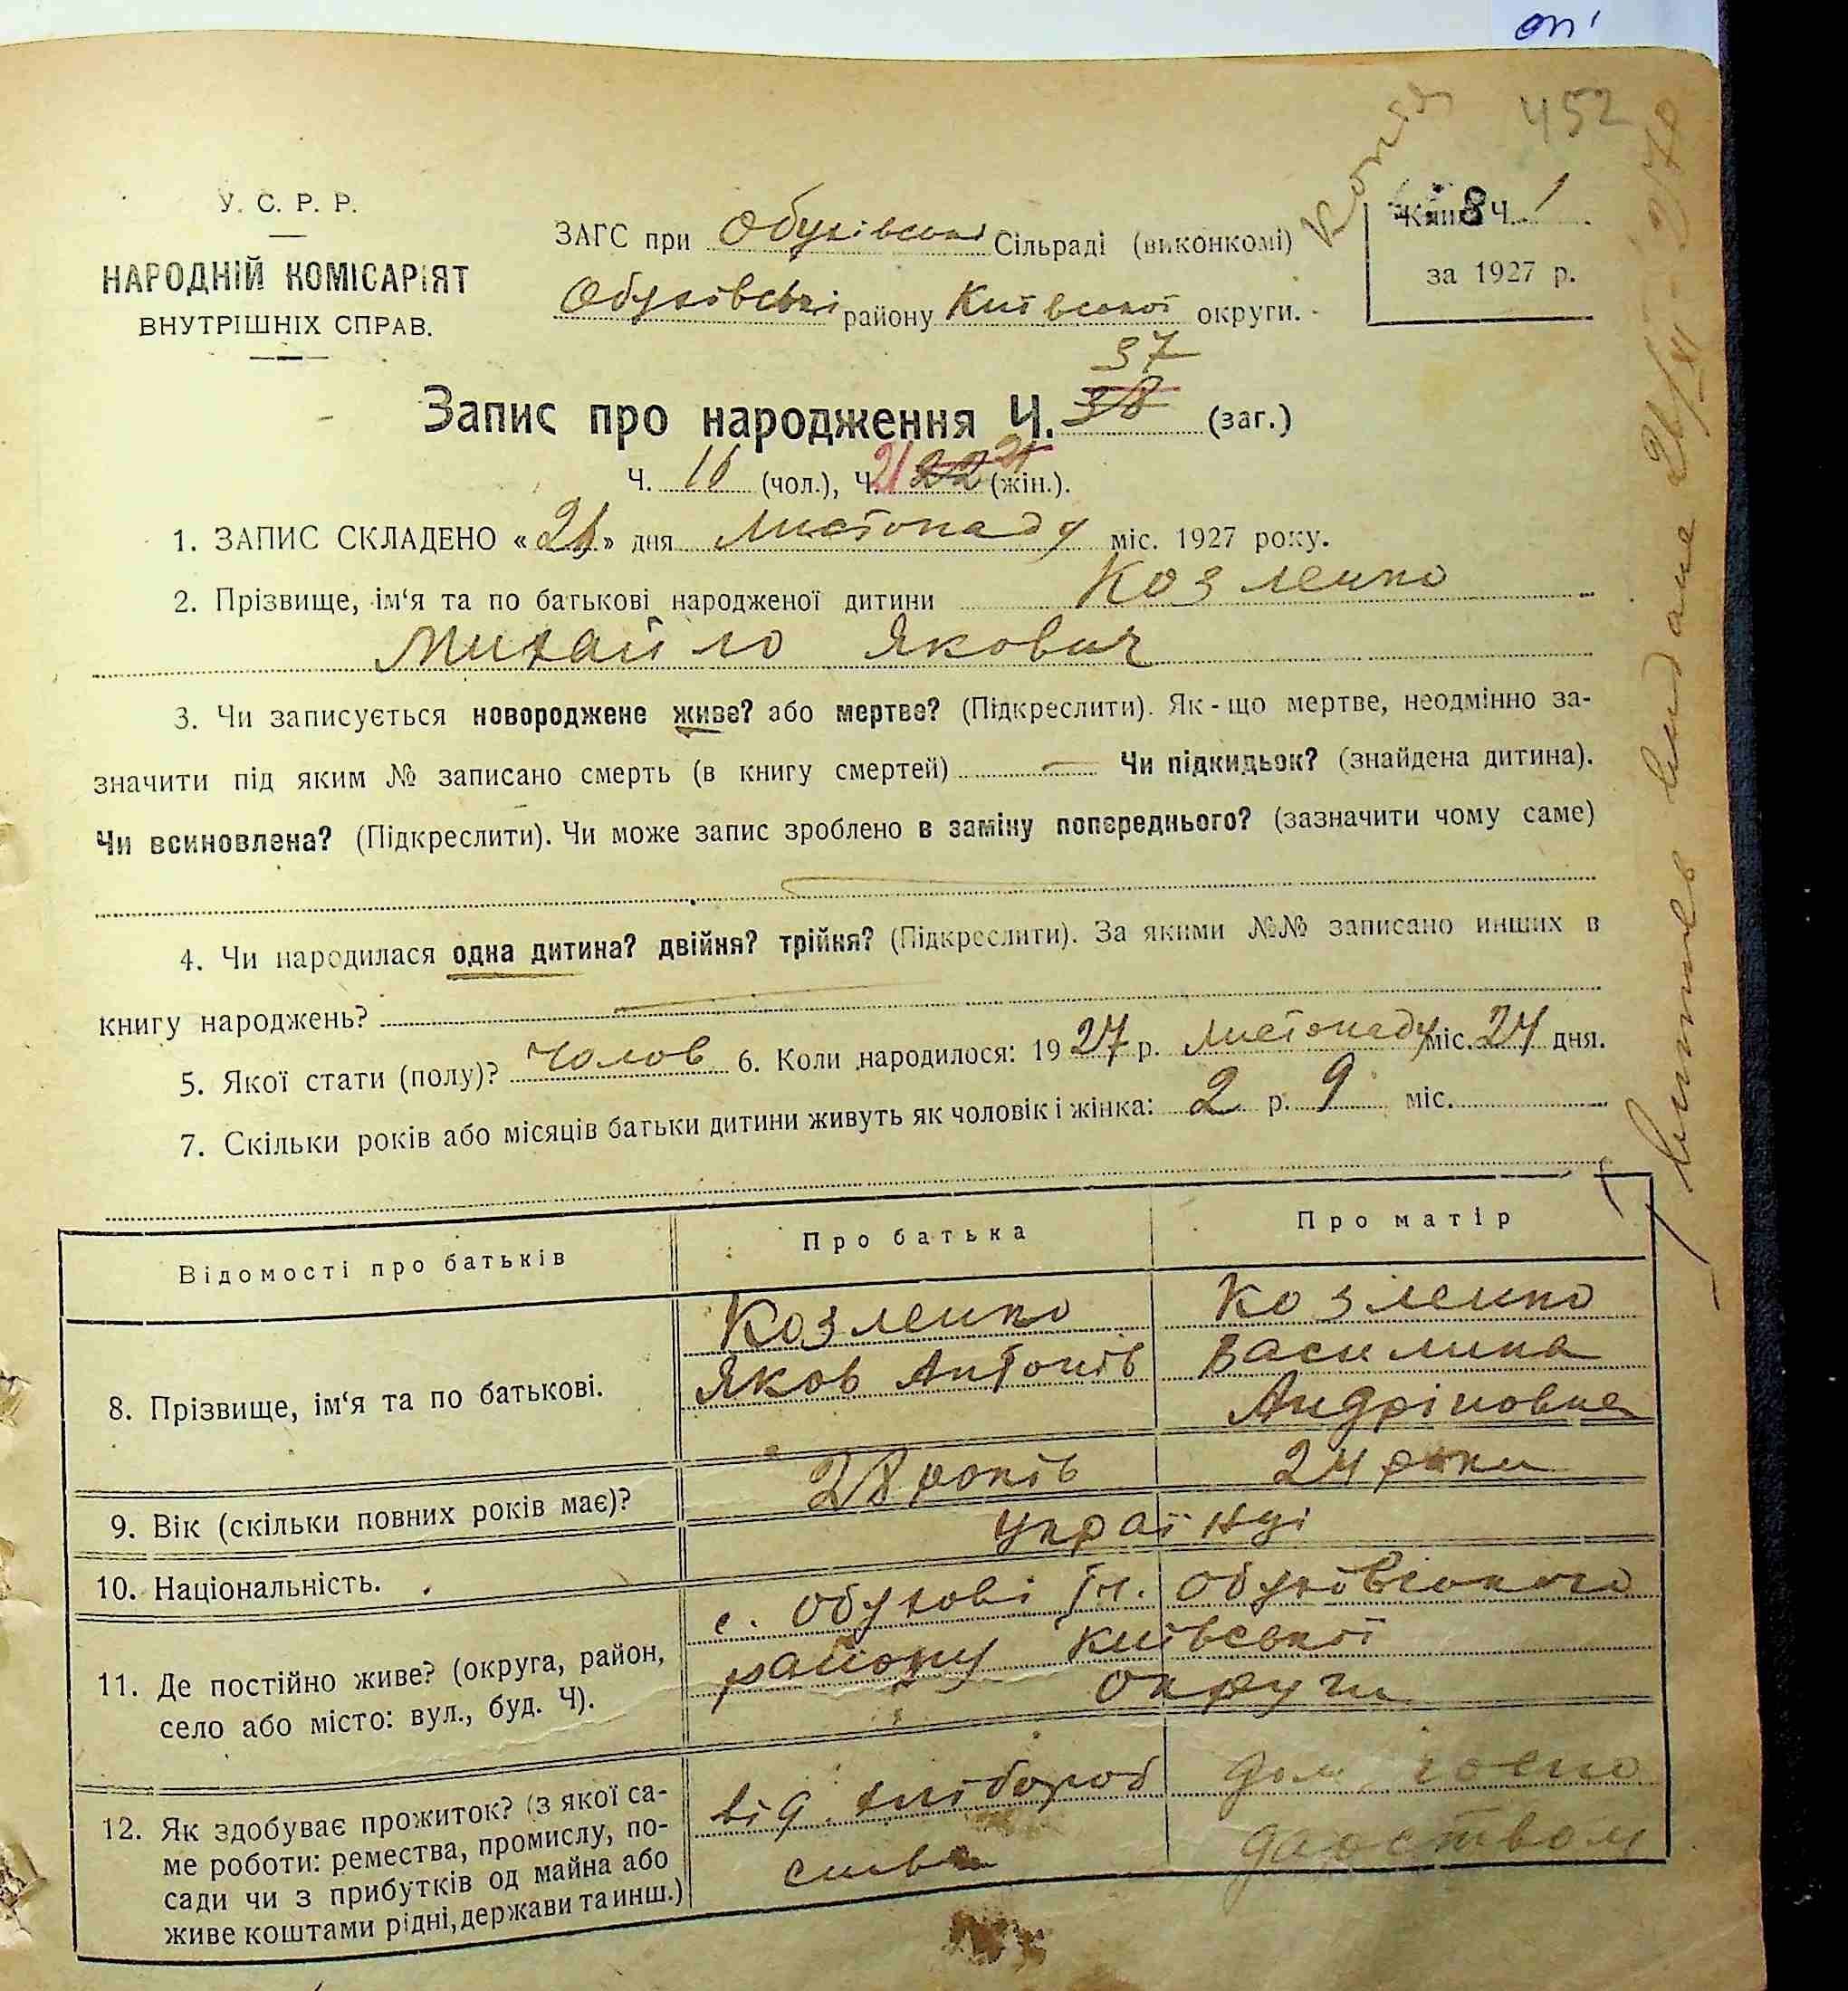 452
Копія
У. С. Р. Р.
НАРОДНІЙ КОМІСАРІЯТ
ВНУТРІШНІХ СПРАВ.
ЗАГС при Обухівській Сільраді (виконкомі)
Обухівські району Київської округи.
Ч. 1
за 1927 р.
37
Запис про народження Ч. 38 (заг.)
Ч. 16 (чол.), Ч. 21 22 21 (жін.).
1. ЗАПИС СКЛАДЕНО «» дня Листопаду міс. 1927 року.
2. Прізвище, ім‘я та по батькові народженої дитини Козленко
Михайло Якович
3. Чи записується новороджене живе? або мертве? (Підкреслити). Як-що мертве, неодмінно за-
значити під яким № записано смерть (в книгу смертей) — Чи підкидьок? (знайдена дитина).
Чи всиновлена? (Підкреслити). Чи може запис зроблено в заміну попереднього? (зазначити чому саме)
4. Чи народилася одна дитина? двійня? трійня? (Підкреслити). За якими №№ записано инших в
книгу народжень?
5. Якої стати (полу)? Чолов. 6. Коли народилося: 1927 р. Листопаду міс. 24 дня.
7. Скільки років або місяців батьки дитини живуть як чоловік і жінка: 2 р. 9 міс.
Відомості про батьків
Про батька
Про матір
8. Прізвище, ім‘я та по батькові.
Козленко
Яков Антонів
Козленко
Василина
Андріповна
9. Вік (скільки повних років має)?
28 років
24 роки
10. Національність.
Українці
11. Де постійно живе? (округа, район,
село або місто: вул., буд. Ч).
с. Обухові Обухівського
району Київської
округи
12. Як здобуває прожиток? (з якої са-
ме роботи: ремества, промислу, по-
сади чи з прибутків од майна або
живе коштами рідні, держави та инш.)
від хлібороб
ства
дом. госпо
дарством